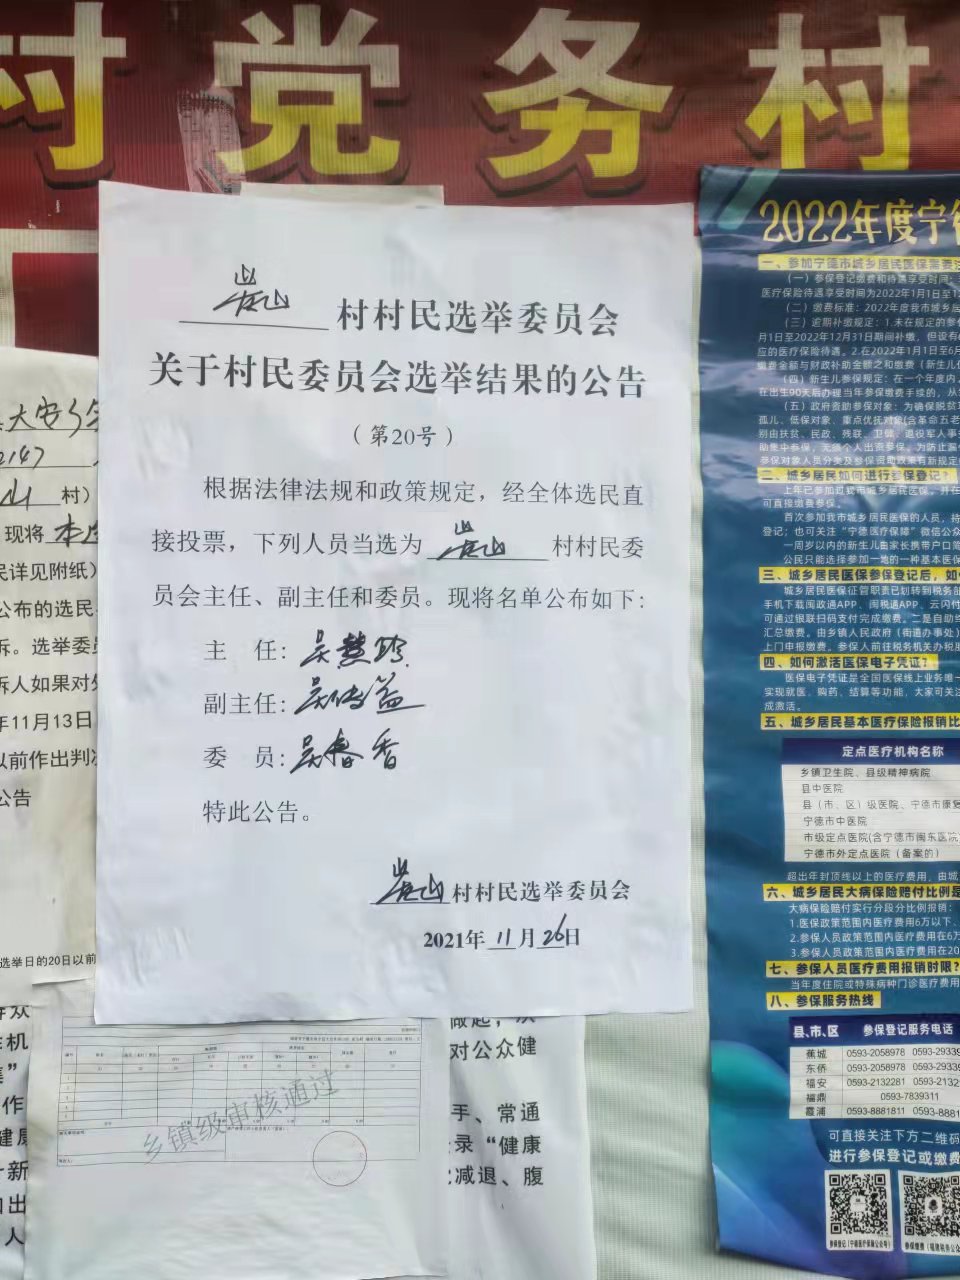 村党务村
岩山村村民选举委员会
关于村民委员会选举结果的公告
（第20号）
根据法律法规和政策规定，经全体选民直
接投票，下列人员当选为岩山村村民委
员会主任、副主任和委员。现将名单公布如下：
主 任：吴慧玲
副主任：吴传益
委 员：吴春香
特此公告。
岩山村村民选举委员会
2021年11月26日
大安乡
山村）
现将
民详见附纸）
公布的选民
诉。选举委员
诉人如果对处
年11月13日
以前作出判决
公告
选举日的20日以前
乡镇级审核通过
对公众健
手、常通
录“健康
减退、腹
2022年度宁
一、参加宁德市城乡居民医保需要
（一）参保登记缴费和待遇享受时间：
医疗保险待遇享受时间为2022年1月1日至
（二）缴费标准：2022年度我市城乡居
（三）逾期补缴规定：1.未在规定的参
月1日至2022年12月31日期间补缴，但设有
应的医疗保险待遇。2.在2022年1月1日至6月
缴费金额与财政补助金额之和缴费（新生儿
（四）新生儿参保规定：在一个年度内，
在出生90天后办理当年参保缴费手续的，从
（五）政府资助参保对象：为确保脱贫
孤儿、低保对象、重点优抚对象(含革命五老
别由扶贫、民政、残联、卫健、退役军人事
助集中参保，无须个人出资参保。为防止漏
参保对象人员分类及参保资助政策有新规定
二、城乡居民如何进行参保登记？
上年已参加过我市城乡居民医保，并在
可直接缴费参保。
首次参加我市城乡居民医保的人员，持
登记；也可关注“宁德医疗保障”微信公众
一周岁以内的新生儿由家长携带户口簿
公民只能选择参加一地的一种基本医保
三、城乡居民医保参保登记后，如
城乡居民医保征管职责已划转到税务部
手机下载闽政通APP、闽税通APP、云闪付
可通过银联扫码支付完成缴费。二是自助终
汇总缴费。由乡镇人民政府（街道办事处）
上门申报缴费。参保人前往税务机关办税服
四、如何激活医保电子凭证？
医保电子凭证是全国医保线上业务唯一
实现就医、购药、结算等功能，大家可关注
成激活。
五、城乡居民基本医疗保险报销比
定点医疗机构名称
乡镇卫生院、县级精神病院
县中医院
县（市、区）级医院、宁德市康复
宁德市中医院
市级定点医院(含宁德市闽东医院
宁德市外定点医院（备案的）
超出年封顶线以上的医疗费用，由城
六、城乡居民大病保险赔付比例是
大病保险赔付实行分段分比例报销：
1.医保政策范围内医疗费用6万以下、
2.参保人员政策范围内医疗费用在6万
3.参保人员政策范围内医疗费用在20
七、参保人员医疗费用报销时限？
当年度住院或特殊病种门诊医疗费用
八、参保服务热线
县、市、区 参保登记服务电话
蕉城 0593-2058978 0593-29339
东侨 0593-2058978 0593-29339
福安 0593-2132281 0593-2132
福鼎 0593-7839311
霞浦 0593-8881811 0593-8881
可直接关注下方二维码
进行参保登记或缴费